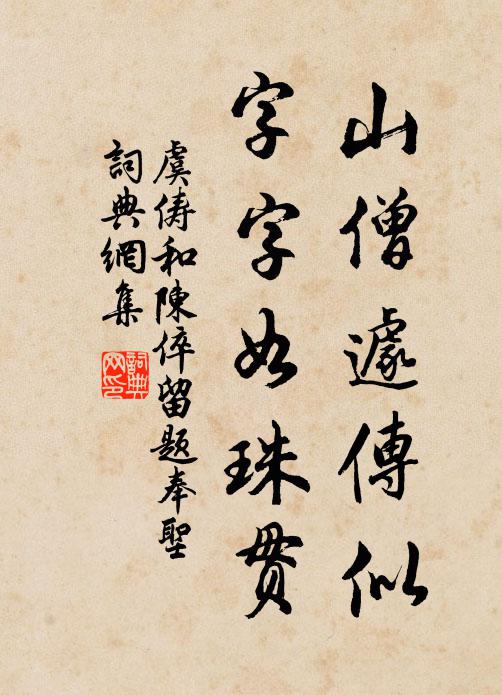 山僧遽傳似
字字如珠貫
虞儔和陳倅留題奉聖
詞典網集
詞典網印